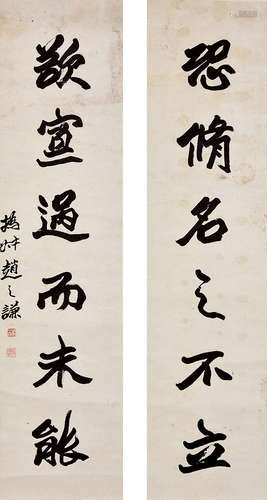 恐脩名之不立
欲寡過而未能
撝叔趙之謙